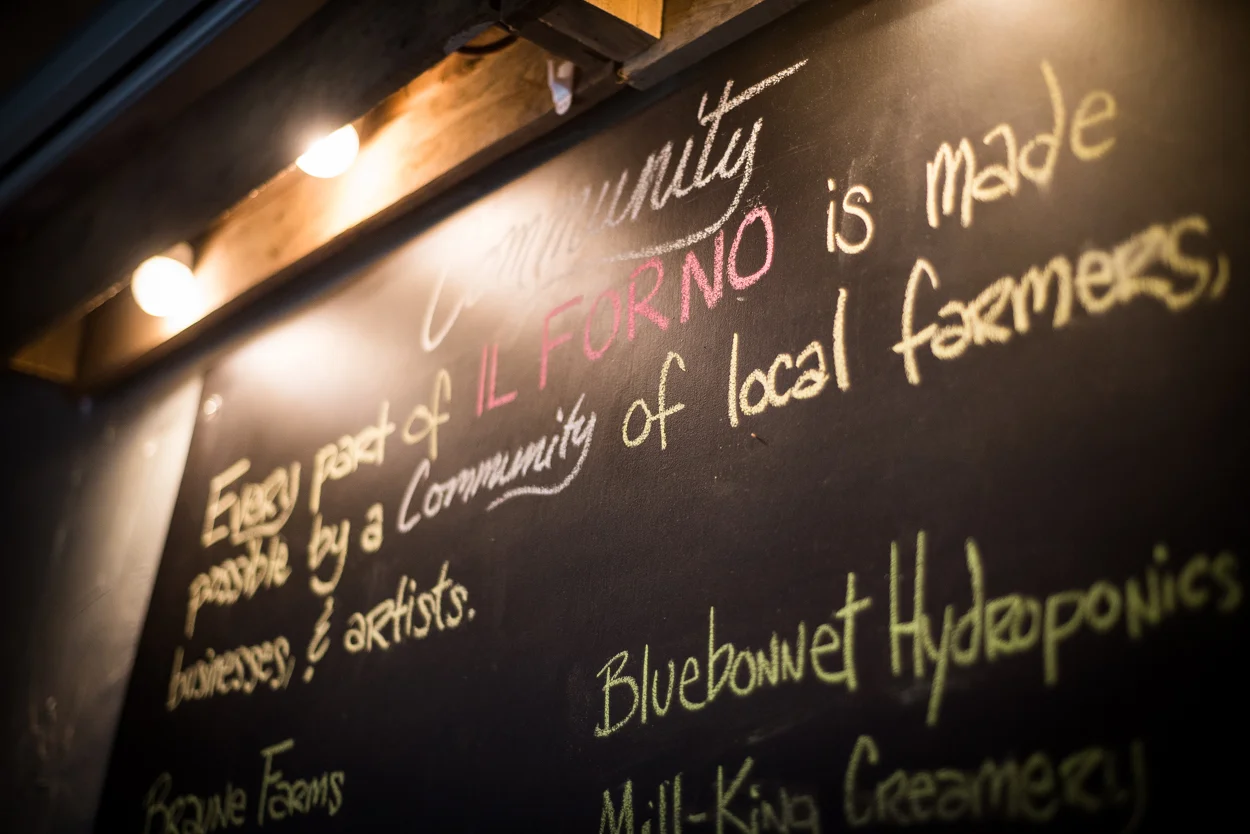 Community
Every part of IL FORNO is made
possible by a Community of local farmers,
businesses, & artists.
Bluebonnet Hydroponics
Braune Farms
Mill-King Creamery